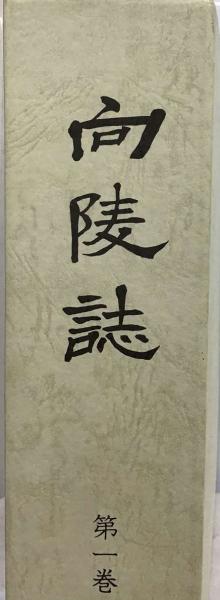 向陵誌
第一巻